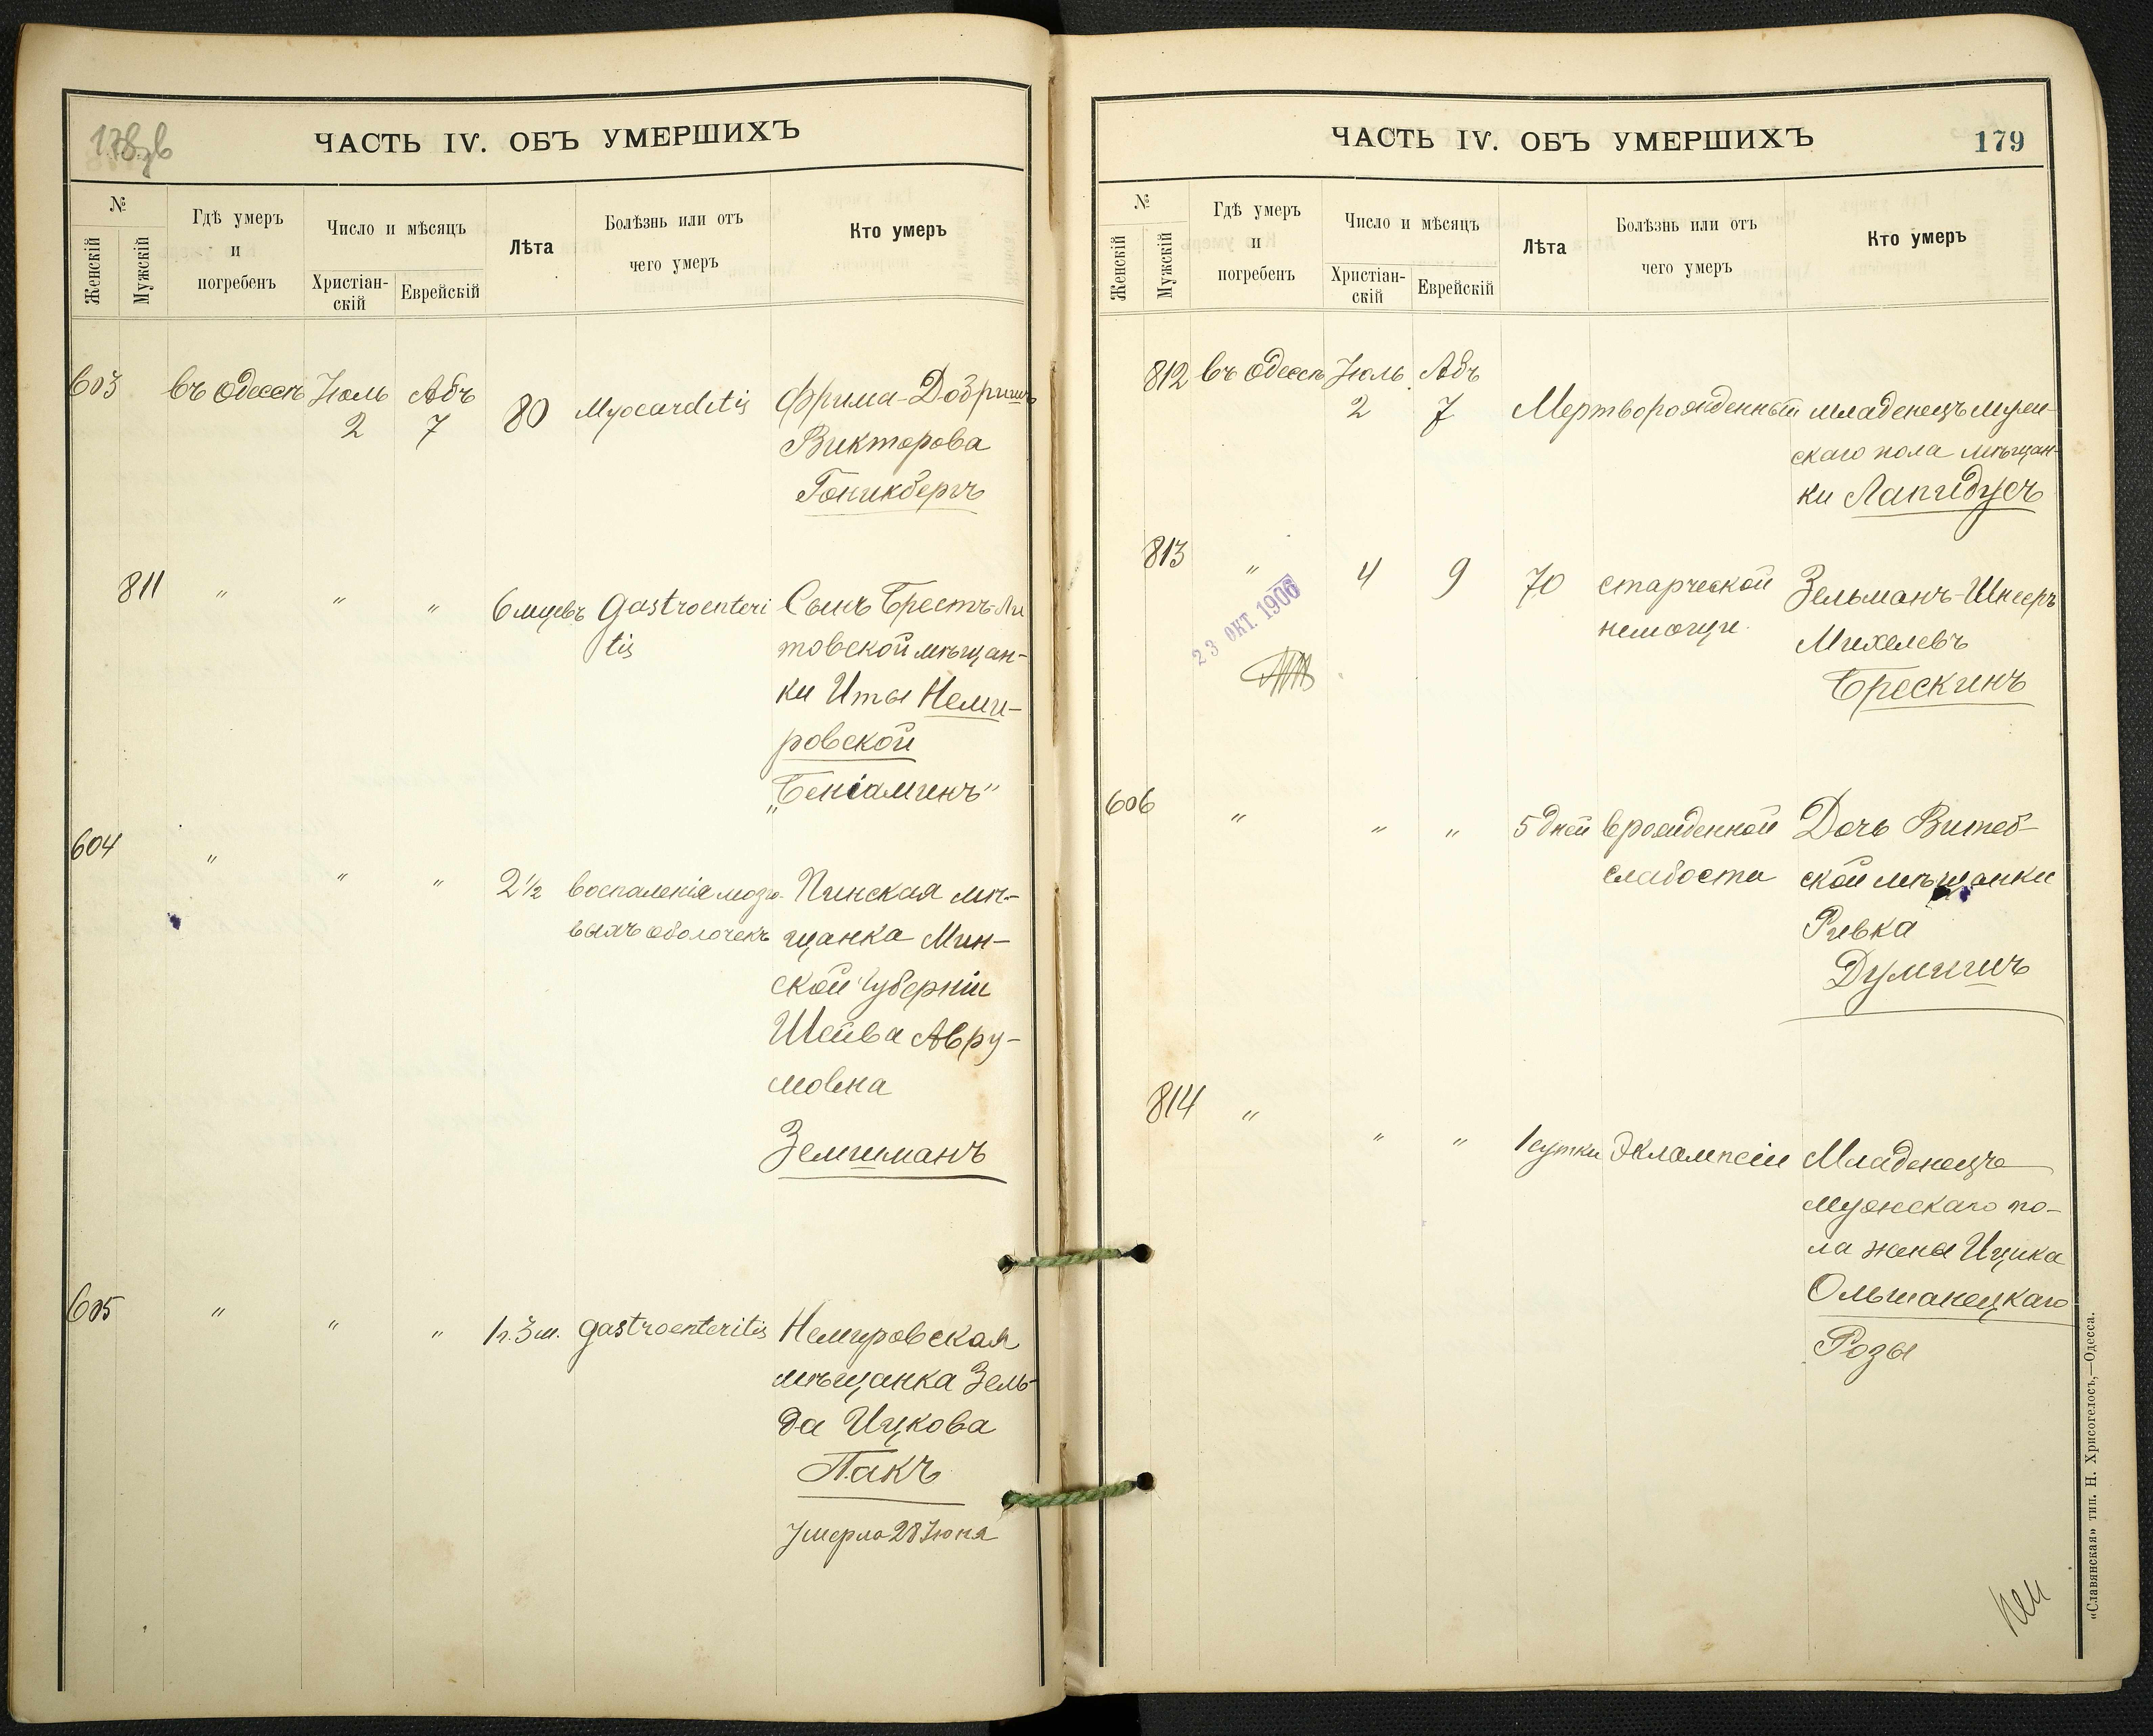 178об
ЧАСТЬ IV. ОБЪ УМЕРШИХЪ
№
Женскій
Мужскій
Гдѣ умеръ
и
погребенъ
Число и мѣсяцъ
Христіан-
скій
Еврейскій
Лѣта
Болѣзнь или отъ
чего умеръ
Кто умеръ
603 въ Одессѣ Іюль 2 Абъ 7 80 Myocarditis Фрима-Добришъ
Викторова
Гоникбергъ
811 " " " 6 мцевъ Gastroenteri Сынъ Брестъ-Ли
tis товской мѣщан-
ки Иты Неми-
ровской
"Беніаминъ"
604 " " " 2½ воспаленія мозго- Пинская мѣ-
выхъ оболочекъ щанка Мин-
ской губерніи
Шейва Авру-
мовна
Земшманъ
605 " " " 1 г. 3 м. gastroenteritis Немировская
мѣщанка Зель-
да Ицкова
Пакъ
Умерла 28 Іюня
ЧАСТЬ IV. ОБЪ УМЕРШИХЪ
179
№
Женскій
Мужскій
Гдѣ умеръ
и
погребенъ
Число и мѣсяцъ
Христіан-
скій
Еврейскій
Лѣта
Болѣзнь или отъ
чего умеръ
Кто умеръ
812 въ Одессѣ Іюль 2 Абъ 7 Мертворожденный младенецъ муж-
скаго пола мѣщан-
ки Лапидусъ
813 " 4 9 70 старческой Зельманъ-Шнееръ
немощи Михелевъ
Брескинъ
23 ОКТ. 1906
606 " " " 5 дней врожденной Дочь Витеб-
слабости ской мѣщанки
Ривка
Думкинъ
814 " " " 1 сутки Эклампсіи Младенецъ
мужскаго по-
ла жены Ицика
Ольшанецкаго
Розы
«Славянская» тип. Н. Хрисогелосъ,—Одесса.